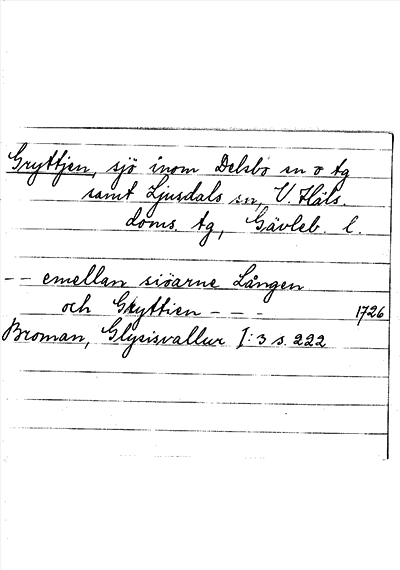 Gryttjen, sjö inom Delsbo sn o tg
samt Ljusdals sn, V. Häls.
doms. tg, Gävleb. l.
-- emellan siöarne Lången
och Gryttien - - - 1726
Broman, Glysisvallur I:3 s. 222